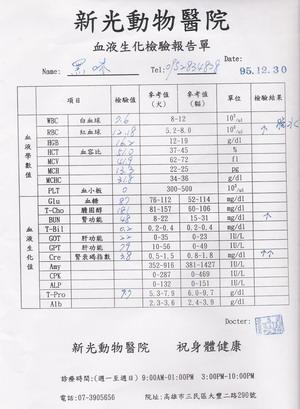 新光動物醫院
血液生化檢驗報告單
Date:
Name: 黑咪 Tel: 95.12.30
項目 檢驗值 參考值(犬) 參考值(貓) 單位 檢驗結果
血液學數值
WBC 白血球 7.6 8-12 10³/ul
RBC 紅血球 12.18 5.2-8.0 10⁶/ul ↑ 脫水
HGB 16.2 12-19 g/dl
HCT 血容比 51.0 37-45 %
MCV 41.9 62-72 fl
MCH 13.3 22-25 pg
MCHC 31.8 34-36 g/dl
PLT 血小板 0 300-500 10³/ul
血液生化值
Glu 血糖 87 76-112 52-114 mg/dl
T-Cho 膽固醇 181 81-157 60-106 mg/dl
BUN 腎功能 48 8-22 15-31 mg/dl ↑
T-Bil 0.2 0.2-0.4 0.2-0.4 mg/dl
GOT 肝功能 22 0-35 0-23 IU/L
GPT 肝功能 79 10-56 0-49 IU/L
Cre 腎衰竭指數 3.8 0.5-1.5 0.8-1.8 mg/dl ↑↑
Amy 352-916 381-1427 IU/L
CPK 0-287 0-469 IU/L
ALP 0-132 0-151 IU/L
T-Pro 9.7 5.3-7.9 6.0-9.7 g/dl
Alb 2.3-3.6 2.4-3.9 g/dl
Docter:
新光動物醫院 祝身體健康
診療時間:(週一至週日) 9:00AM-01:00PM 3:00PM-10:00PM
電話:07-3905656 院址:高雄市三民區大豐二路290號